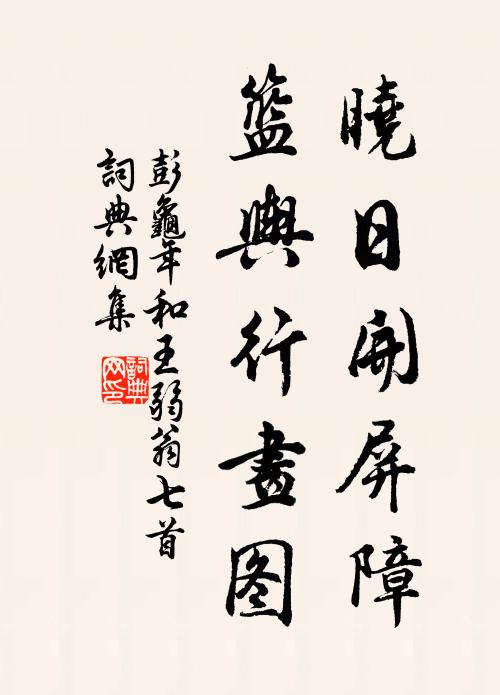 曉日開屏障
籃輿行畫图
彭龜年和王弱翁七首
詞典網集
詞典
网印